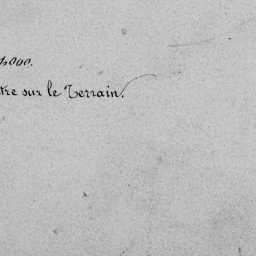 000.
tre sur le Terrain.